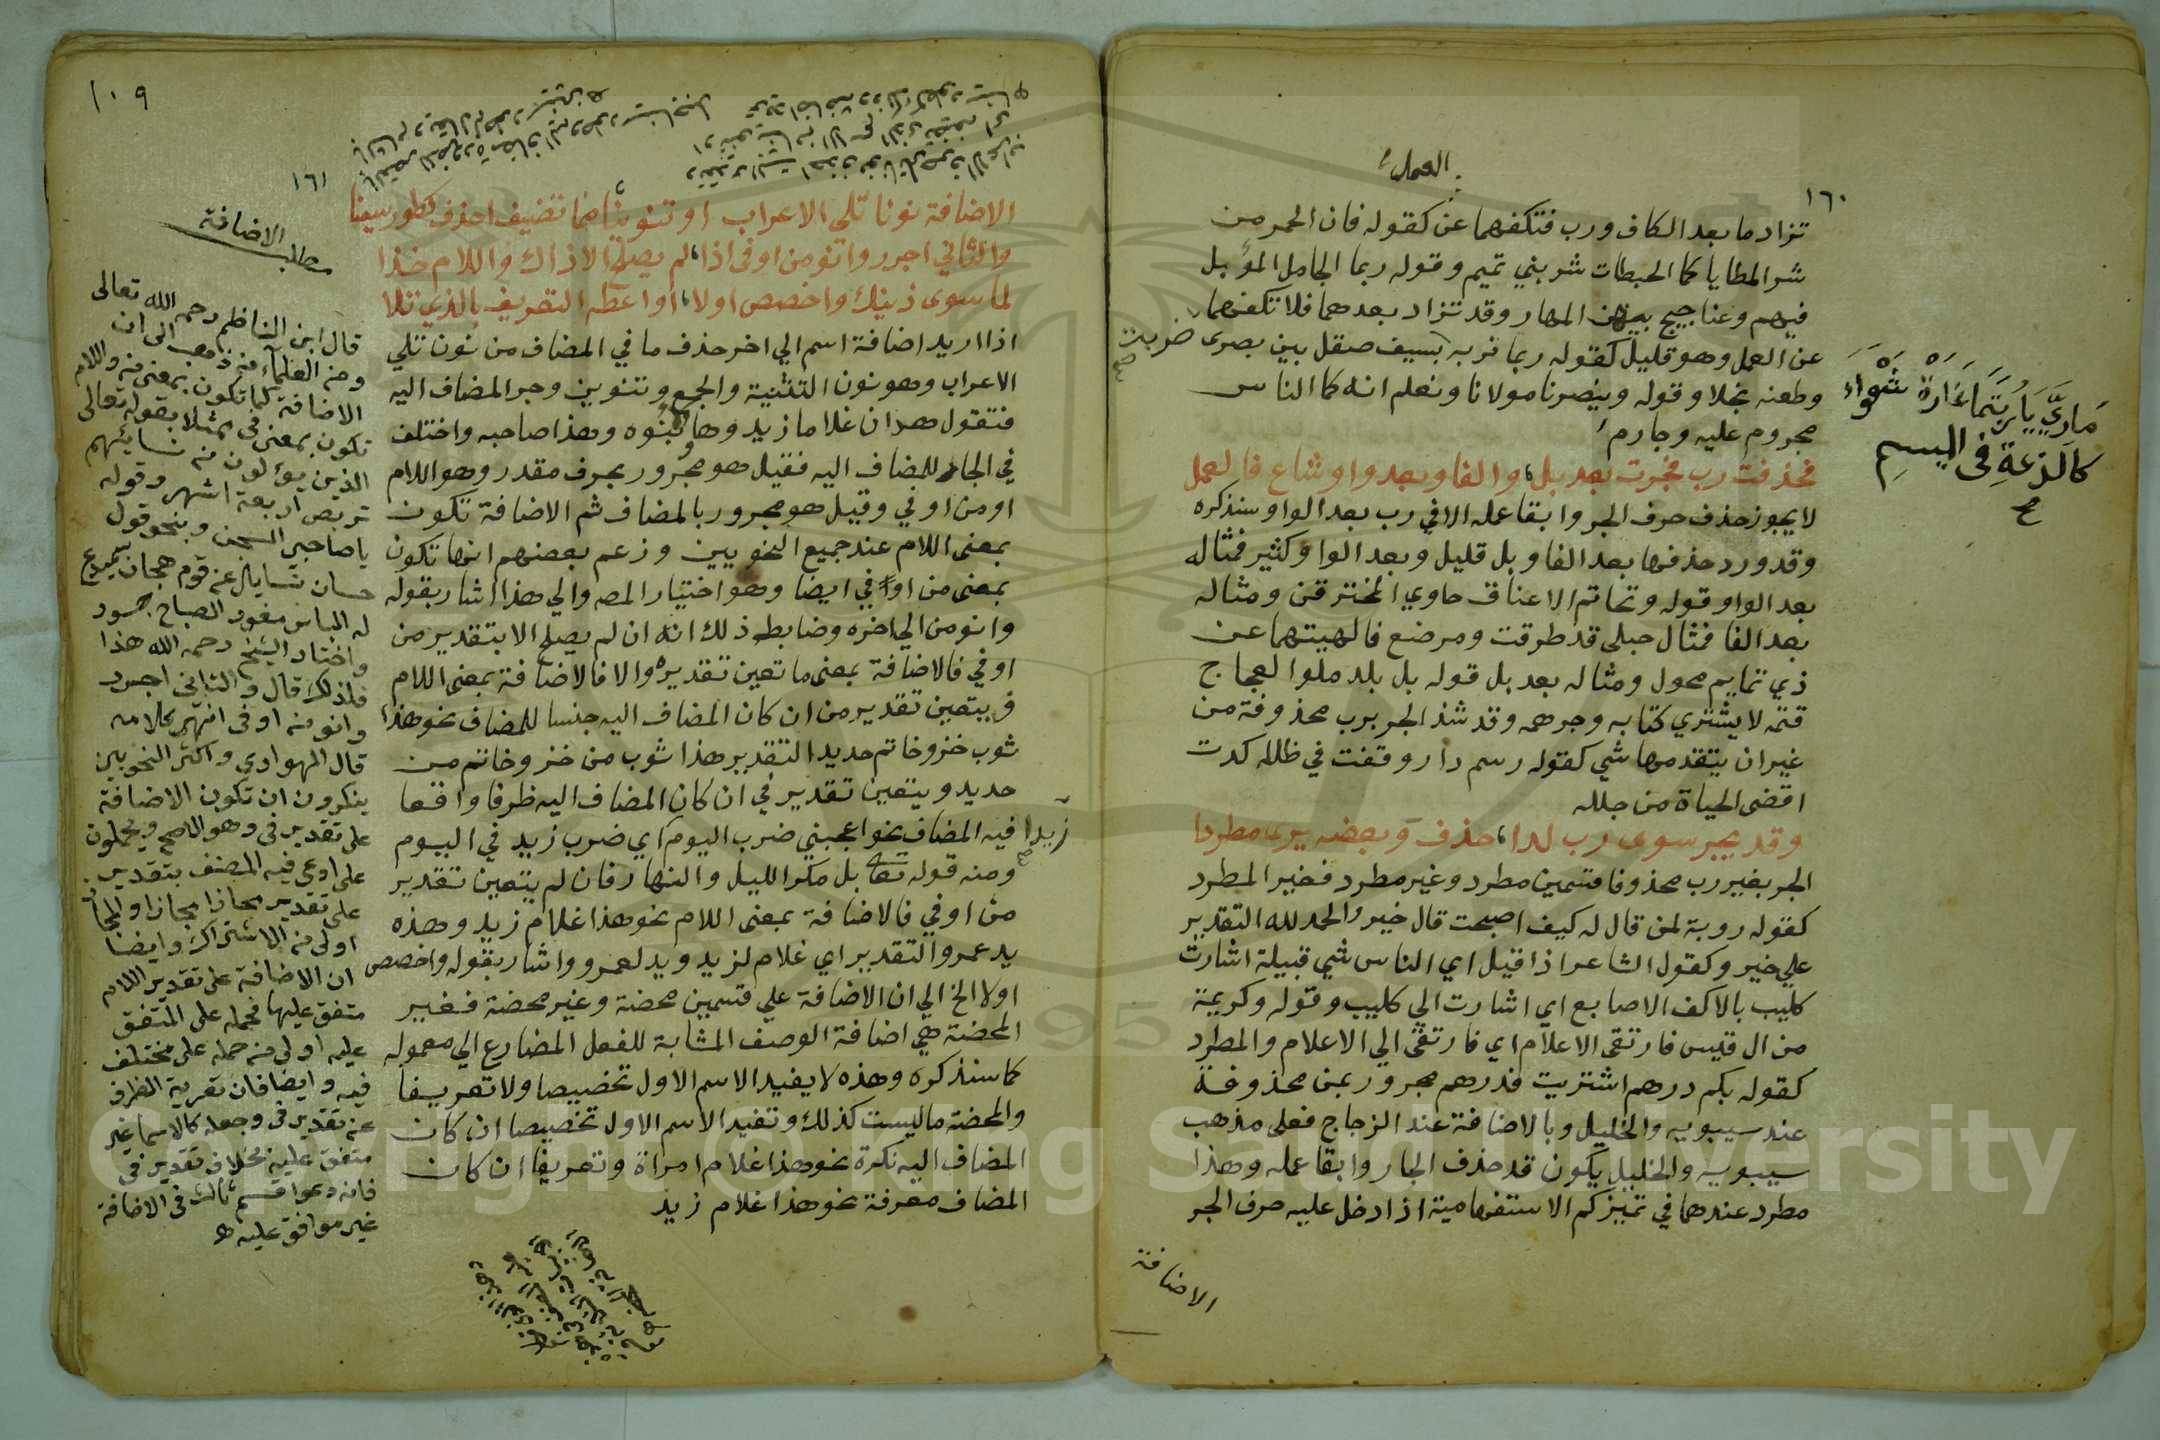 ١٦٠
العمل
تزاد ما بعد الكاف ورب فتكفهما عن كقوله فان الحمر من
شر المطايا كما الحبطات شر بني تميم وقوله ربما الجامل المؤبل
فيهم وعناجيج بينهن المهار وقد تزاد بعدهما فلا تكفهما
عن العمل وهو قليل كقوله ربما ضربة بسيف صقل بين بصرى
وطعنه نجلا وقوله وينصرنا مولانا ونعلم انه كما الناس
مجروم عليه وجارم
فحذفت رب فجرت بعد بل، والفا وبعد واو شاع ذا العمل
لا يجوز حذف حرف الجر وابقا عمله الا في رب بعد الواو وسنذكره
وقد ورد حذفها بعد الفا وبل قليل وبعد الواو كثير فمثاله
بعد الواو قوله وقاتم الاعناق حاوي المخترقن ومثاله
بعد الفا فمثال حبلى قد طرقت ومرضع فالهيتها عن
ذي تمايم محول ومثاله بعد بل قوله بل بلد ملوا لعجاج
قتمه لا يشتري كتابه وجرهمه وقد شذ الجر برب محذوفة من
غير ان يتقدمها شي كقوله رسم دار وقفت في طلله كدت
اقضى الحياة من جلله
وقد يجر سوى رب لدا، حذف وبعضه يرى مطردا
الجر بغير رب محذوفا قسمين مطرد وغير مطرد فغير المطرد
كقوله روبة لمن قال له كيف اصبحت قال خير والحمد لله التقدير
علي خير وكقول الشاعر اذا قيل اي الناس شي قبيلة اشارت
كليب بالاكف الاصابع اي اشارت الي كليب وقوله وكريمة
من ال قيس فارتقى الاعلام اي فارتقى الي الاعلام والمطرد
كقوله بكم درهم اشتريت فدرهم مجرور بمن محذوفة
عند سيبويه والخليل وبالاضافة عند الزجاج فعلى مذهب
سيبويه والخليل يكون قد حذف الجار وابقا عمله وهذا
مطرد عندهما في تمييز كم الاستفهامية اذا دخل عليه حرف الجر
الاضافة
ضربت
صح
ماوي يا ربتما غارة شعواء
كاللذعة في الميسم
صح
١٠٩
١٦١
الاضافة نونا تلى الاعراب او تنوينا مما تضيف احذف كطور سينا
والثاني اجرر وانو من او في اذا، لم يصلح الا ذاك واللام خذا
لما سوى ذينك واخصص اولا، او اعطه التعريف بالذي تلا
اذا اريد اضافة اسم الي اخر حذف ما في المضاف من نون تلي
الاعراب وهو نون التثنية والجمع وتنوين وجر المضاف اليه
فتقول هذان غلاما زيد وهاولا بنوه وهذا صاحبه واختلف
في الجار للمضاف اليه فقيل هو مجرور بحرف مقدر وهو اللام
او من او في وقيل هو مجرور بالمضاف ثم الاضافة تكون
بمعنى اللام عند جميع النحويين وزعم بعضهم انها تكون
بمعنى من او في ايضا وهو اختيار المصه والي هذا اشار بقوله
وانو من الي اخره وضابط ذلك انه ان لم يصلح الا بتقدير من
او في فالاضافة بمعنى ما تعين تقديره والا فالاضافة بمعنى اللام
فيتعين تقدير من ان كان المضاف اليه جنسا للمضاف نحو هذا
ثوب خز وخاتم حديد التقدير هذا ثوب من خز وخاتم من
حديد ويتعين تقدير في ان كان المضاف اليه ظرفا واقعا
فيه المضاف نحو اعجبني ضرب اليوم اي ضرب زيد في اليوم
زيدا
صح
ومنه قوله تعا بل مكر الليل والنهار فان لم يتعين تقدير
من او في فالاضافة بمعنى اللام نحو هذا غلام زيد وهذه
يد عمرو التقدير اي غلام لزيد ويد لعمرو واشار بقوله واخصص
اولا الخ الي ان الاضافة علي قسمين محضة وغير محضة فغير
المحضة هي اضافة الوصف المشابة للفعل المضارع الي معموله
كما سنذكره وهذه لا يفيد الاسم الاول تخصيصا ولا تعريفا
والمحضة ما ليست كذلك وتفيد الاسم الاول تخصيصا ان كان
المضاف اليه نكرة نحو هذا غلام امراة وتعريفا ان كان
المضاف معرفة نحو هذا غلام زيد
مطلب الاضافة
قال ابن الناظم رحمه الله تعالى
ومن العلماء من ذهب الى ان
الاضافة كما تكون بمعنى من واللام
تكون بمعنى في ممثلا بقوله تعالى
الذين يؤلون من نسائهم
تربص اربعة اشهر وقوله
يا صاحبي السجن وبنحو قول
حسان تسايل عن قوم هجان سميدع
له الباس مغوار الصباح جسور
واختار الشيخ رحمه الله هذا
فلذلك قال والثاني اجرر
وانو من او في انتهى كلامه
قال المرادي واكثر النحويين
ينكرون ان تكون الاضافة
على تقدير في وهو الاصح ويحملون
على ادعي فيه المصنف بتقدير
اولى من الاشتراك وايضا
ان الاضافة على تقدير اللام
متفق عليها فحمله على المتفق
عليه اولى من حمله على مختلف
فيه وايضا فان تعرية الظرف
عن تقدير في وجعله كالاسما غير
متفق عليه بخلاف تقدير في
فانه دعوا قسم ثالث في الاضافة
غير موافق عليه
Copyright © King Saud University